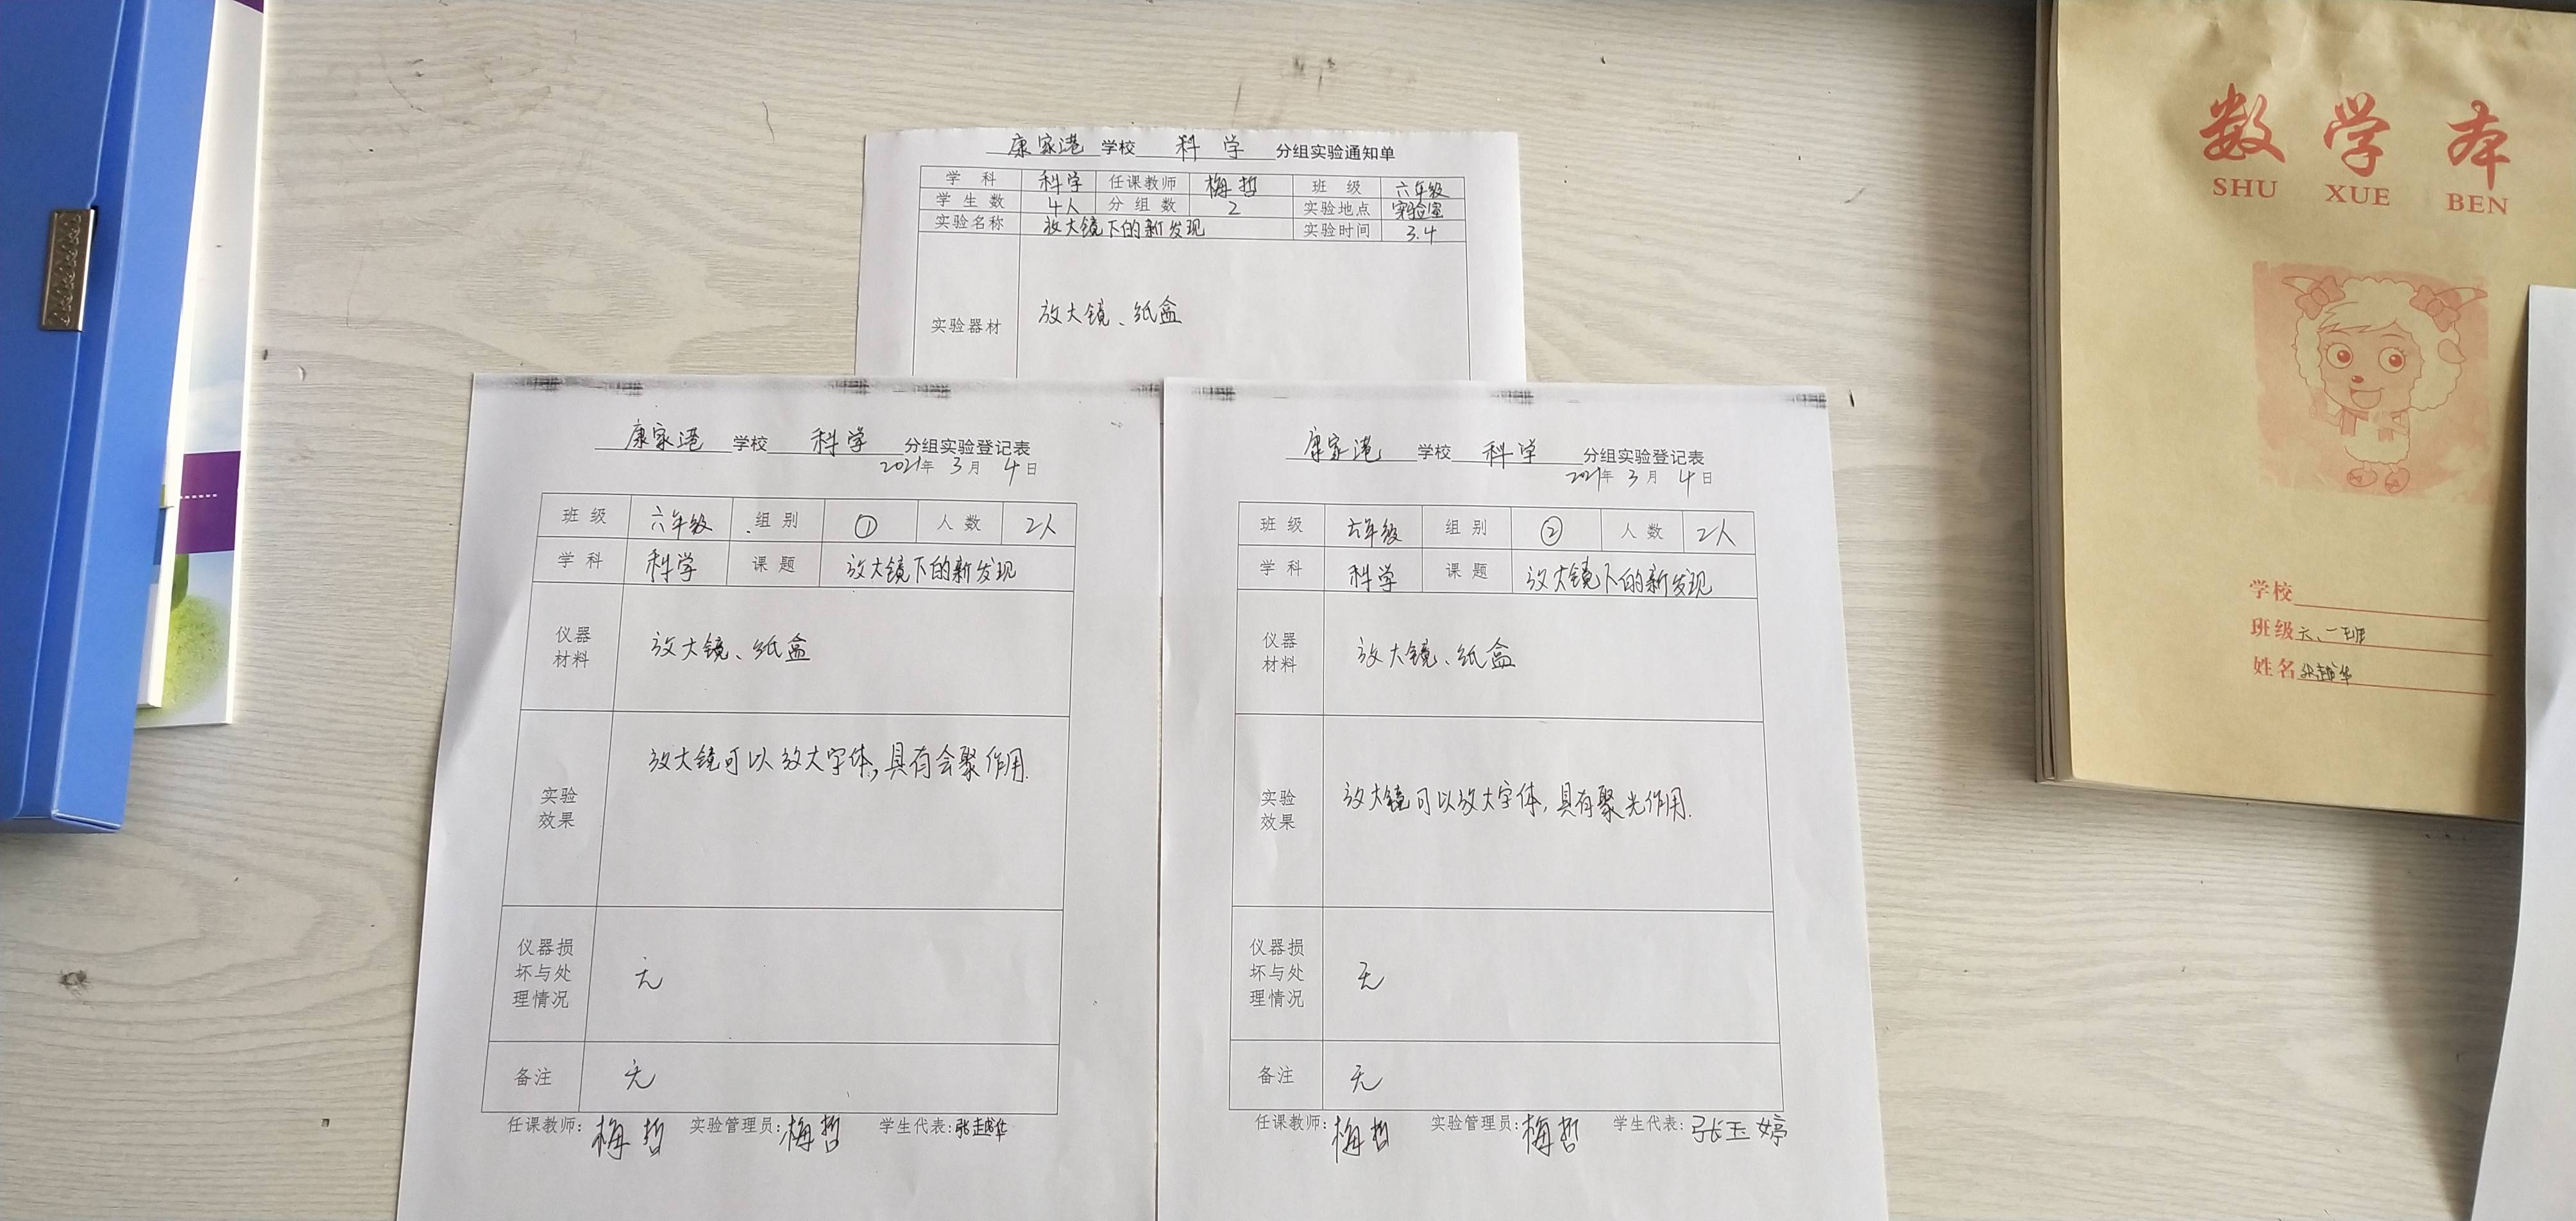 康家港 学校 科学 分组实验通知单
学科 科学 任课教师 梅哲 班级 六年级
学生数 4人 分组数 2 实验地点 实验室
实验名称 放大镜下的新发现 实验时间 3.4
实验器材 放大镜、纸盒
康家港 学校 科学 分组实验登记表
2021年 3月 4日
班级 六年级 组别 ① 人数 2人
学科 科学 课题 放大镜下的新发现
仪器
材料
放大镜、纸盒
实验
效果
放大镜可以放大字体,具有会聚作用.
仪器损
坏与处
理情况
无
备注 无
任课教师: 梅哲 实验管理员: 梅哲 学生代表: 张越华
康家港 学校 科学 分组实验登记表
2021年 3月 4日
班级 六年级 组别 ② 人数 2人
学科 科学 课题 放大镜下的新发现
仪器
材料
放大镜、纸盒
实验
效果
放大镜可以放大字体,具有聚光作用.
仪器损
坏与处
理情况
无
备注 无
任课教师: 梅哲 实验管理员: 梅哲 学生代表: 张玉婷
数学本
SHU XUE BEN
学校
班级 六、一班
姓名 张越华